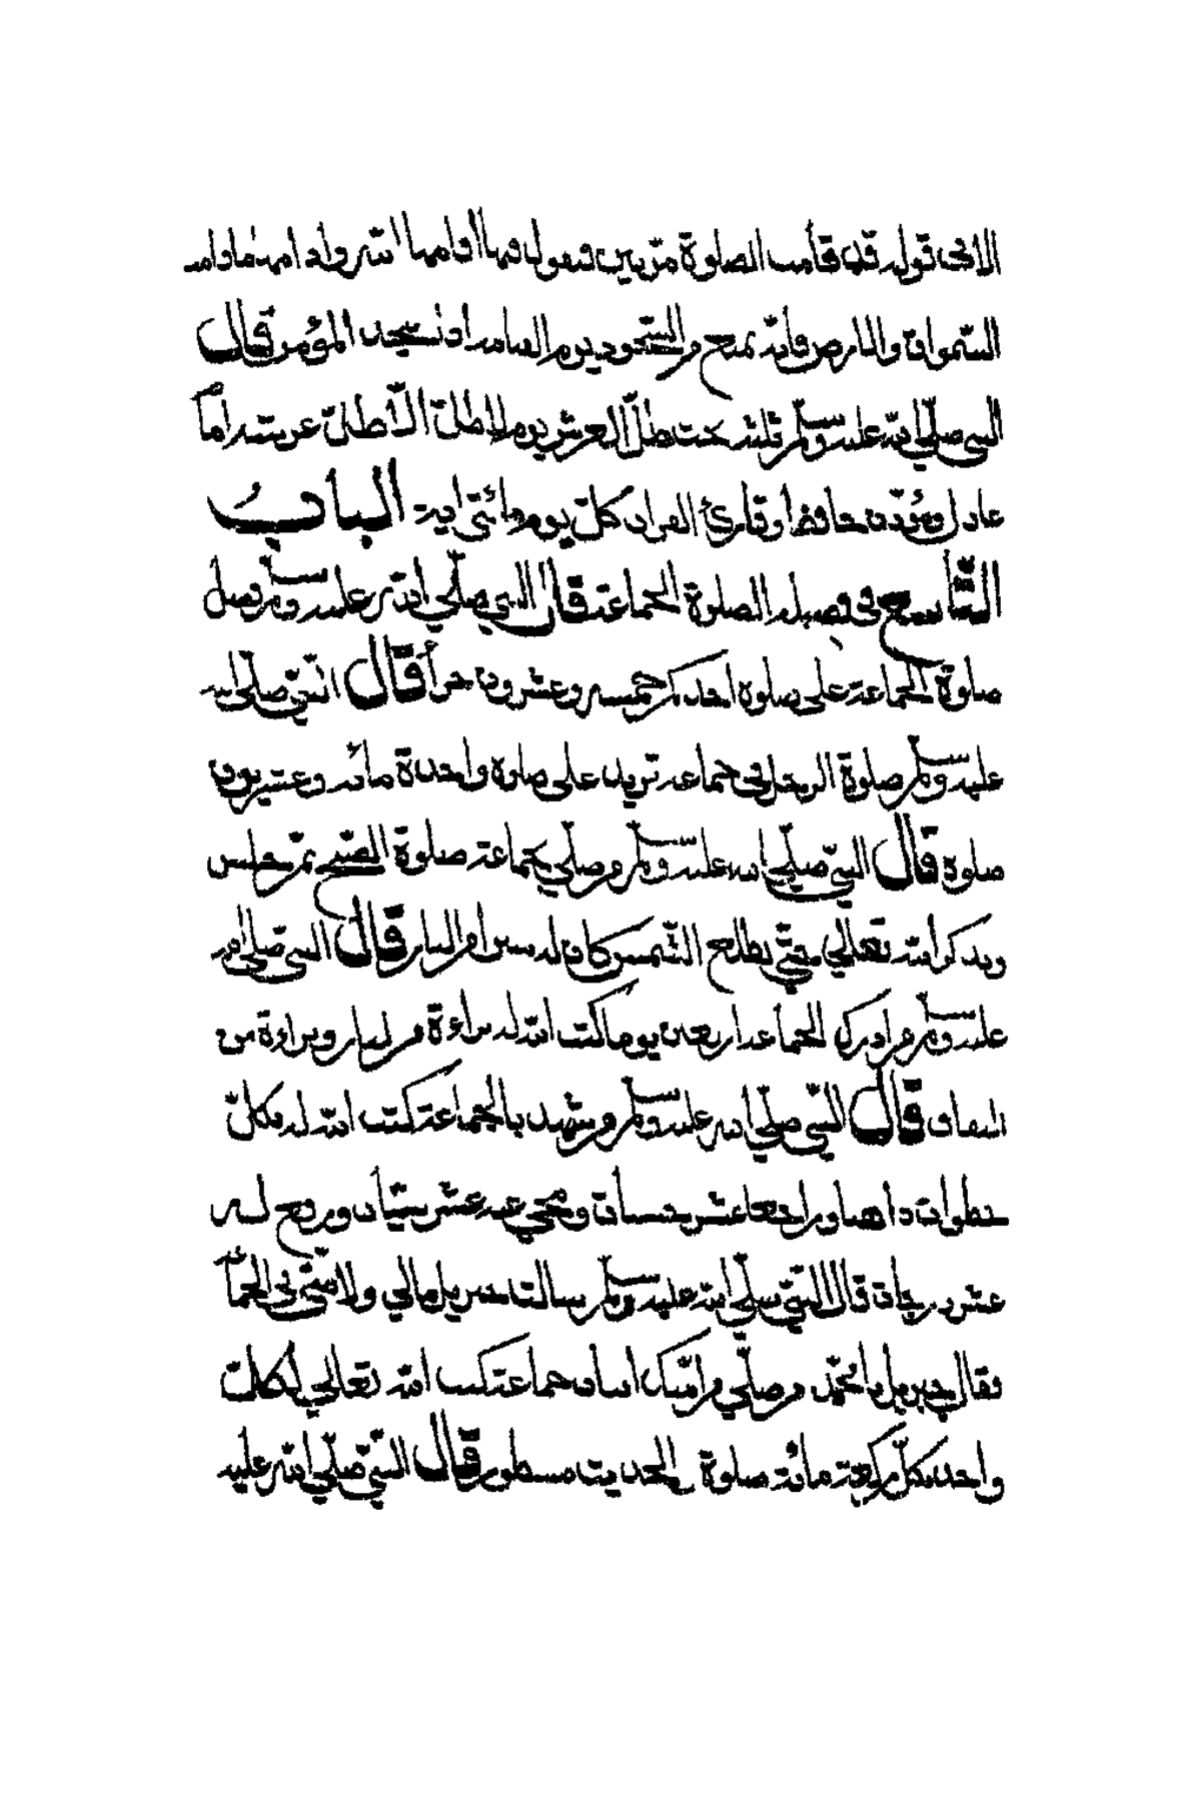 الا في قوله قد قامت الصلوة مرتين فيقول فيها اقامها الله وادامها مادامت
السموات والارض فانه يمنع من السجود يوم القيامة اذ يسجد المؤمن قال
النبي صلى الله عليه وسلم ثلثة تحت ظل العرش يوم لا ظل الا ظل عرشه اماما
عادل ومؤذن حافظ وقارئ القران كل يوم مائتي اية الباب
التاسع في فضيلة الصلوة الجماعة قال النبي صلى الله عليه وسلم فضل
صلوة الجماعة على صلوة احدكم خمسة وعشرون جزأ قال النبي صلى الله
عليه وسلم صلوة الرجل في جماعة تزيد على صلوة واحدة مائة وعشرون
صلوة قال النبي صلى الله عليه وسلم من صلى بجماعة صلوة الصبح ثم جلس
ويذكر الله تعالى حتى يطلع الشمس كان له ستر من النار قال النبي صلى الله
عليه وسلم من ادرك الجماعة اربعين يوما كتب الله له براءة من النار وبراءة من
النفاق قال النبي صلى الله عليه وسلم من شهد بالجماعة كتب الله له بكل
خطوات ذاهبا وراجعا عشر حسنات ومحي عنه عشر سيئات ورفع له
عشر درجات قال النبي صلى الله عليه وسلم سالت جبريل مالي ولامتي في الجماعة
فقال جبريل يا محمد من صلى من امتك اثنان جماعة كتب الله تعالى لكل
واحد بكل ركعة مائة صلوة الحديث مسطور قال النبي صلى الله عليه